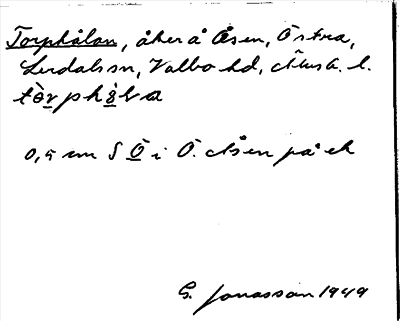 Torphålan, åker å Åsen, Östra,
Lerdals sn, Valbo hd, Älvsb. l.
tò̱rphå̱la
0,5 mm S Ö i Ö. Åsen på ek
G. Jonasson 1949